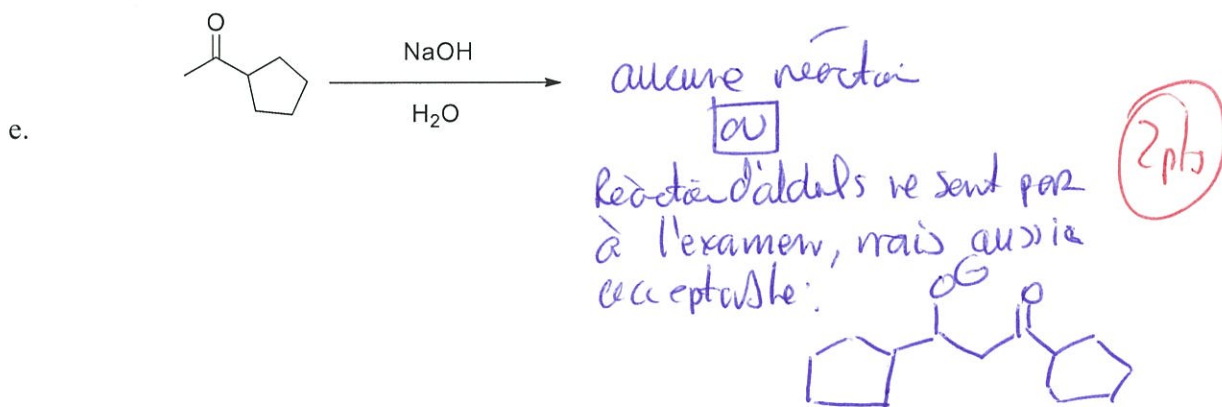 O
NaOH
H₂O
e.
aucune réaction
ou
Réaction d'aldols ne sont pas
à l'examen, mais aussi
acceptable:
O⊖
O
2 pts